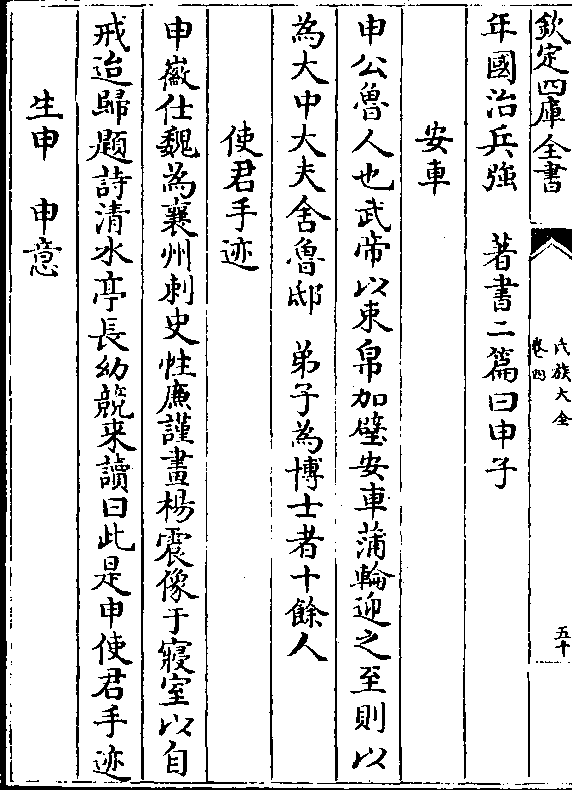 欽定四庫全書
氏族大全
卷四
五十
年國治兵強　著書二篇曰申子
安車
申公魯人也武帝以束帛加璧安車蒲輪迎之至則以
為大中大夫舍魯邸　弟子為博士者十餘人
使君手迹
申徽仕魏為襄州刺史性廉謹畫楊震像于寢室以自
戒迨歸題詩清水亭長幼競来讀曰此是申使君手迹
生申　申意